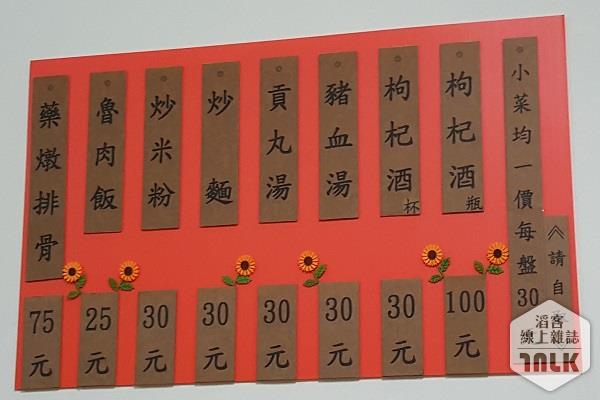 藥燉排骨
75元
魯肉飯
25元
炒米粉
30元
炒麵
30元
貢丸湯
30元
豬血湯
30元
枸杞酒杯
30元
枸杞酒瓶
100元
小菜均一價每盤30
請自
滔客
線上雜誌
TALK